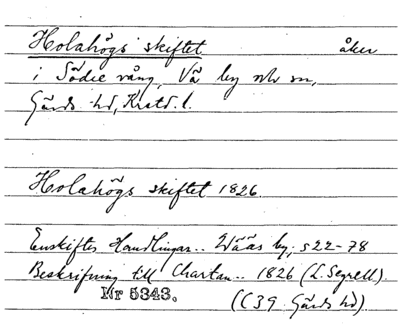 Holahögs skiftet åker
i Södre vång, Vä by och sn,
Gärds hd, Krstd. l.
Holahögs skiftet 1826.
Enskiftes Handlingar.. Wääs by, s 22-78
Beskrifning till Chartan.. 1826 (L. Segrell).
Nr 5343.
(C39 Gärds hd).